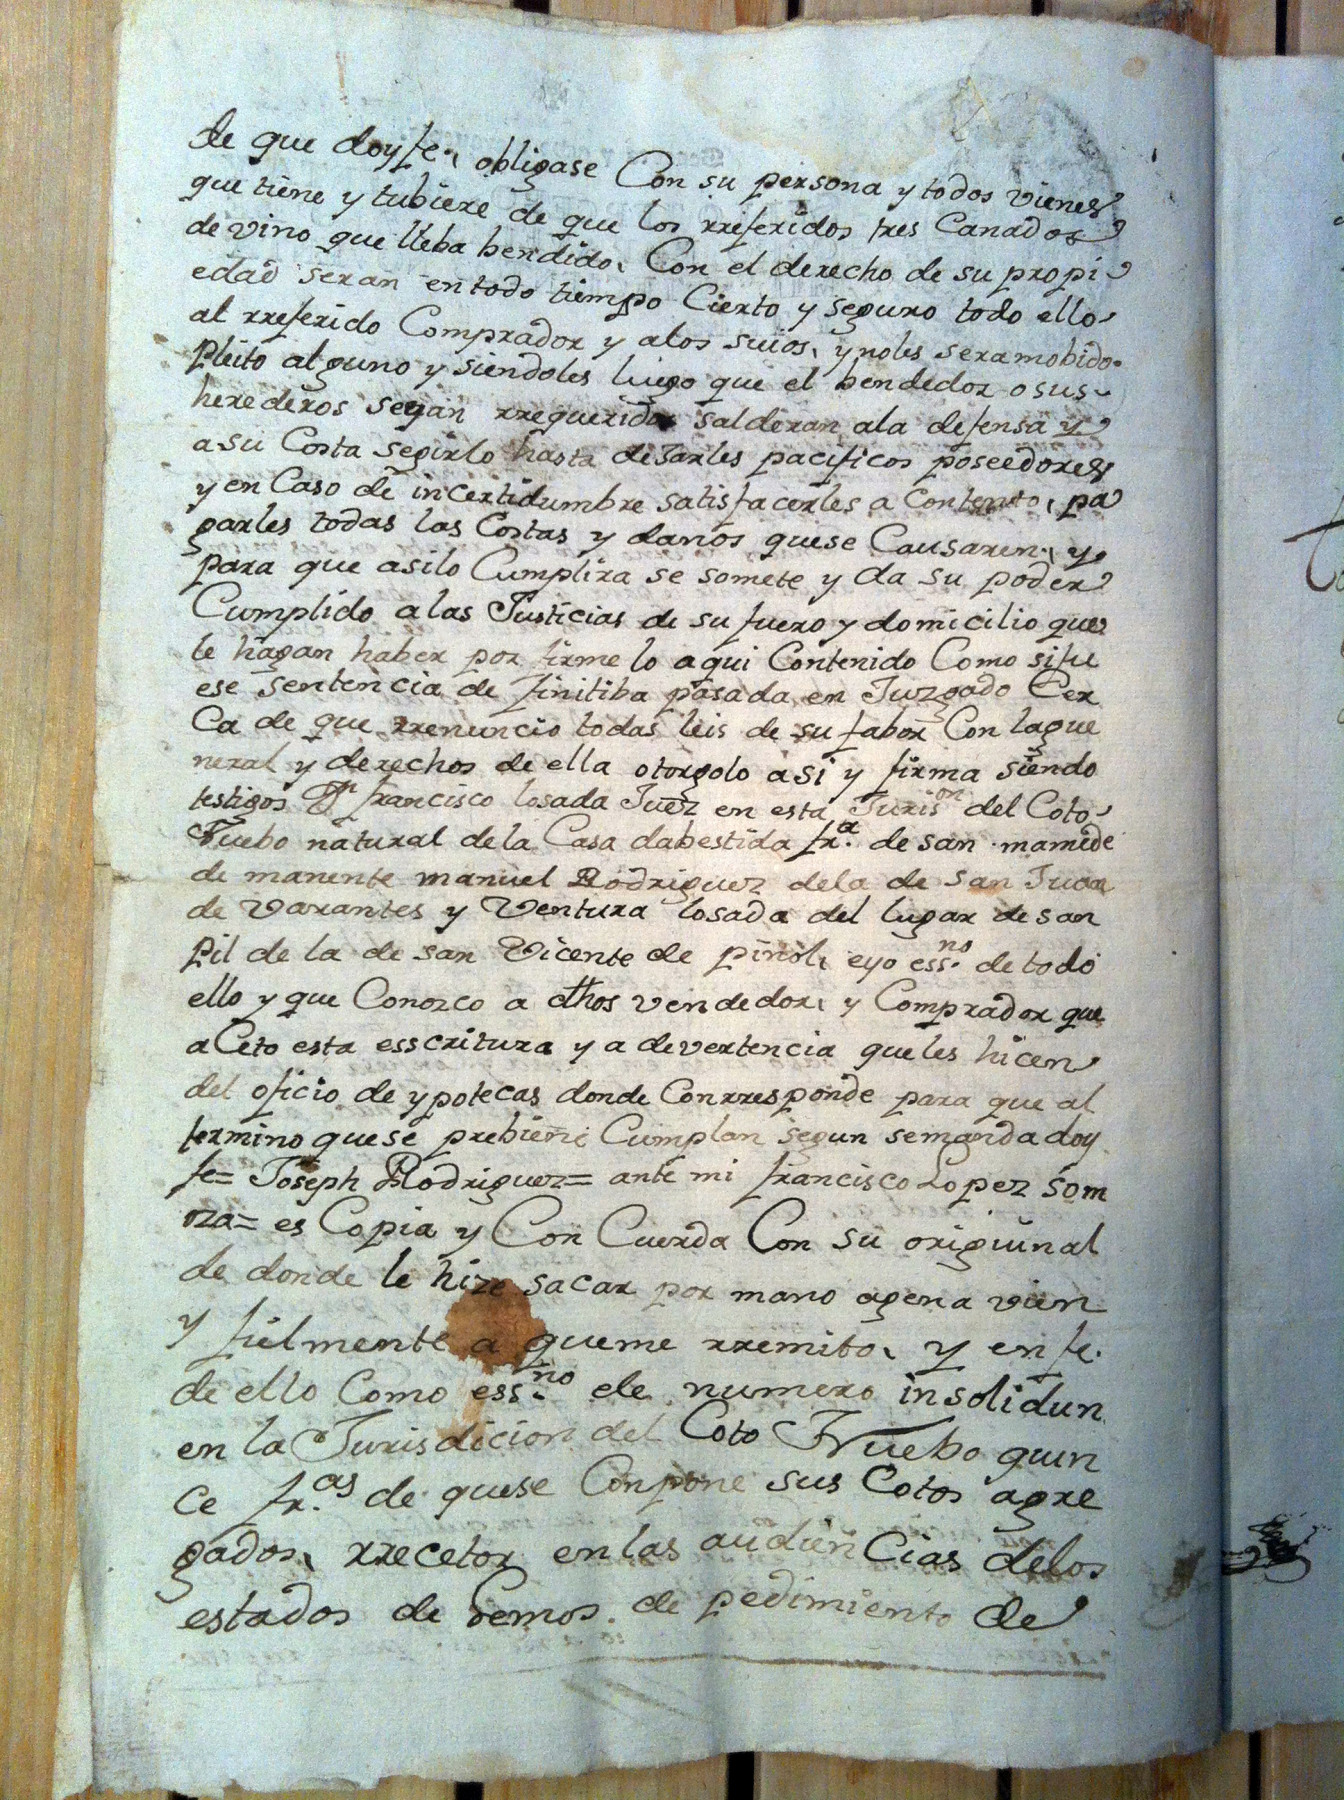 de que doy fe., obligase Con su persona y todos vienes
que tiene y tubiere de que los rreferidos tres Canados
de vino que lleba bendido, Con el derecho de su propi
edad seran en todo tiempo Cierto y seguro todo ello
al rreferido Comprador y alos suios, y noles sera mobido
pleito alguno y siendoles luego que el bendedor o sus
herederos segan rrequeridos salderan ala defensa y
a su Costa segirlo hasta desarles pacificos poseedores
y en Caso de incertidumbre satisfacerles a Contento, pa
garles todas las Costas y danos quese Causaren, y
para que asilo Cumplira se somete y da su poder
Cumplido a las Justicias de su fuero y domicilio que
le hagan haber por firme lo aqui Contenido Como si fu
ese sentencia de finitiba pasada en Juzgado Cer
Ca de que rrenuncio todas leis de su fabor Con la gue
neral y derechos de ella otorgolo asi y firma siendo
testigos Dn francisco losada Juez en esta Jurison del Coto
Nuebo natural de la Casa dabestida fra. de san mamede
de manente manuel Rodriguez dela de san Juan
de Varantes y Ventura losada del lugar de san
pil de la de san Vicente de pinol, eyo essno. de todo
ello y que Conozco a dthos vendedor, y Comprador que
aCeto esta esscritura y a devertencia queles hicen
del oficio de ypotecas donde Conrresponde para que al
termino quese prebiene Cumplan segun semanda doy
fe= Joseph Rodriguez= ante mi francisco Lopez som
oza= es Copia y Con Cuerda Con su origuinal
de donde le hize sacar por mano agena vien
y fielmente a queme rremito, y en fe.
de ello Como essno. de numero insolidun
en la Jurisdicion del Coto Nuebo quin
ce fr.as de quese Conpone sus Cotos agre
gados, rrecetor en las audien Cias delos
estados de lemos. de pedimiento de